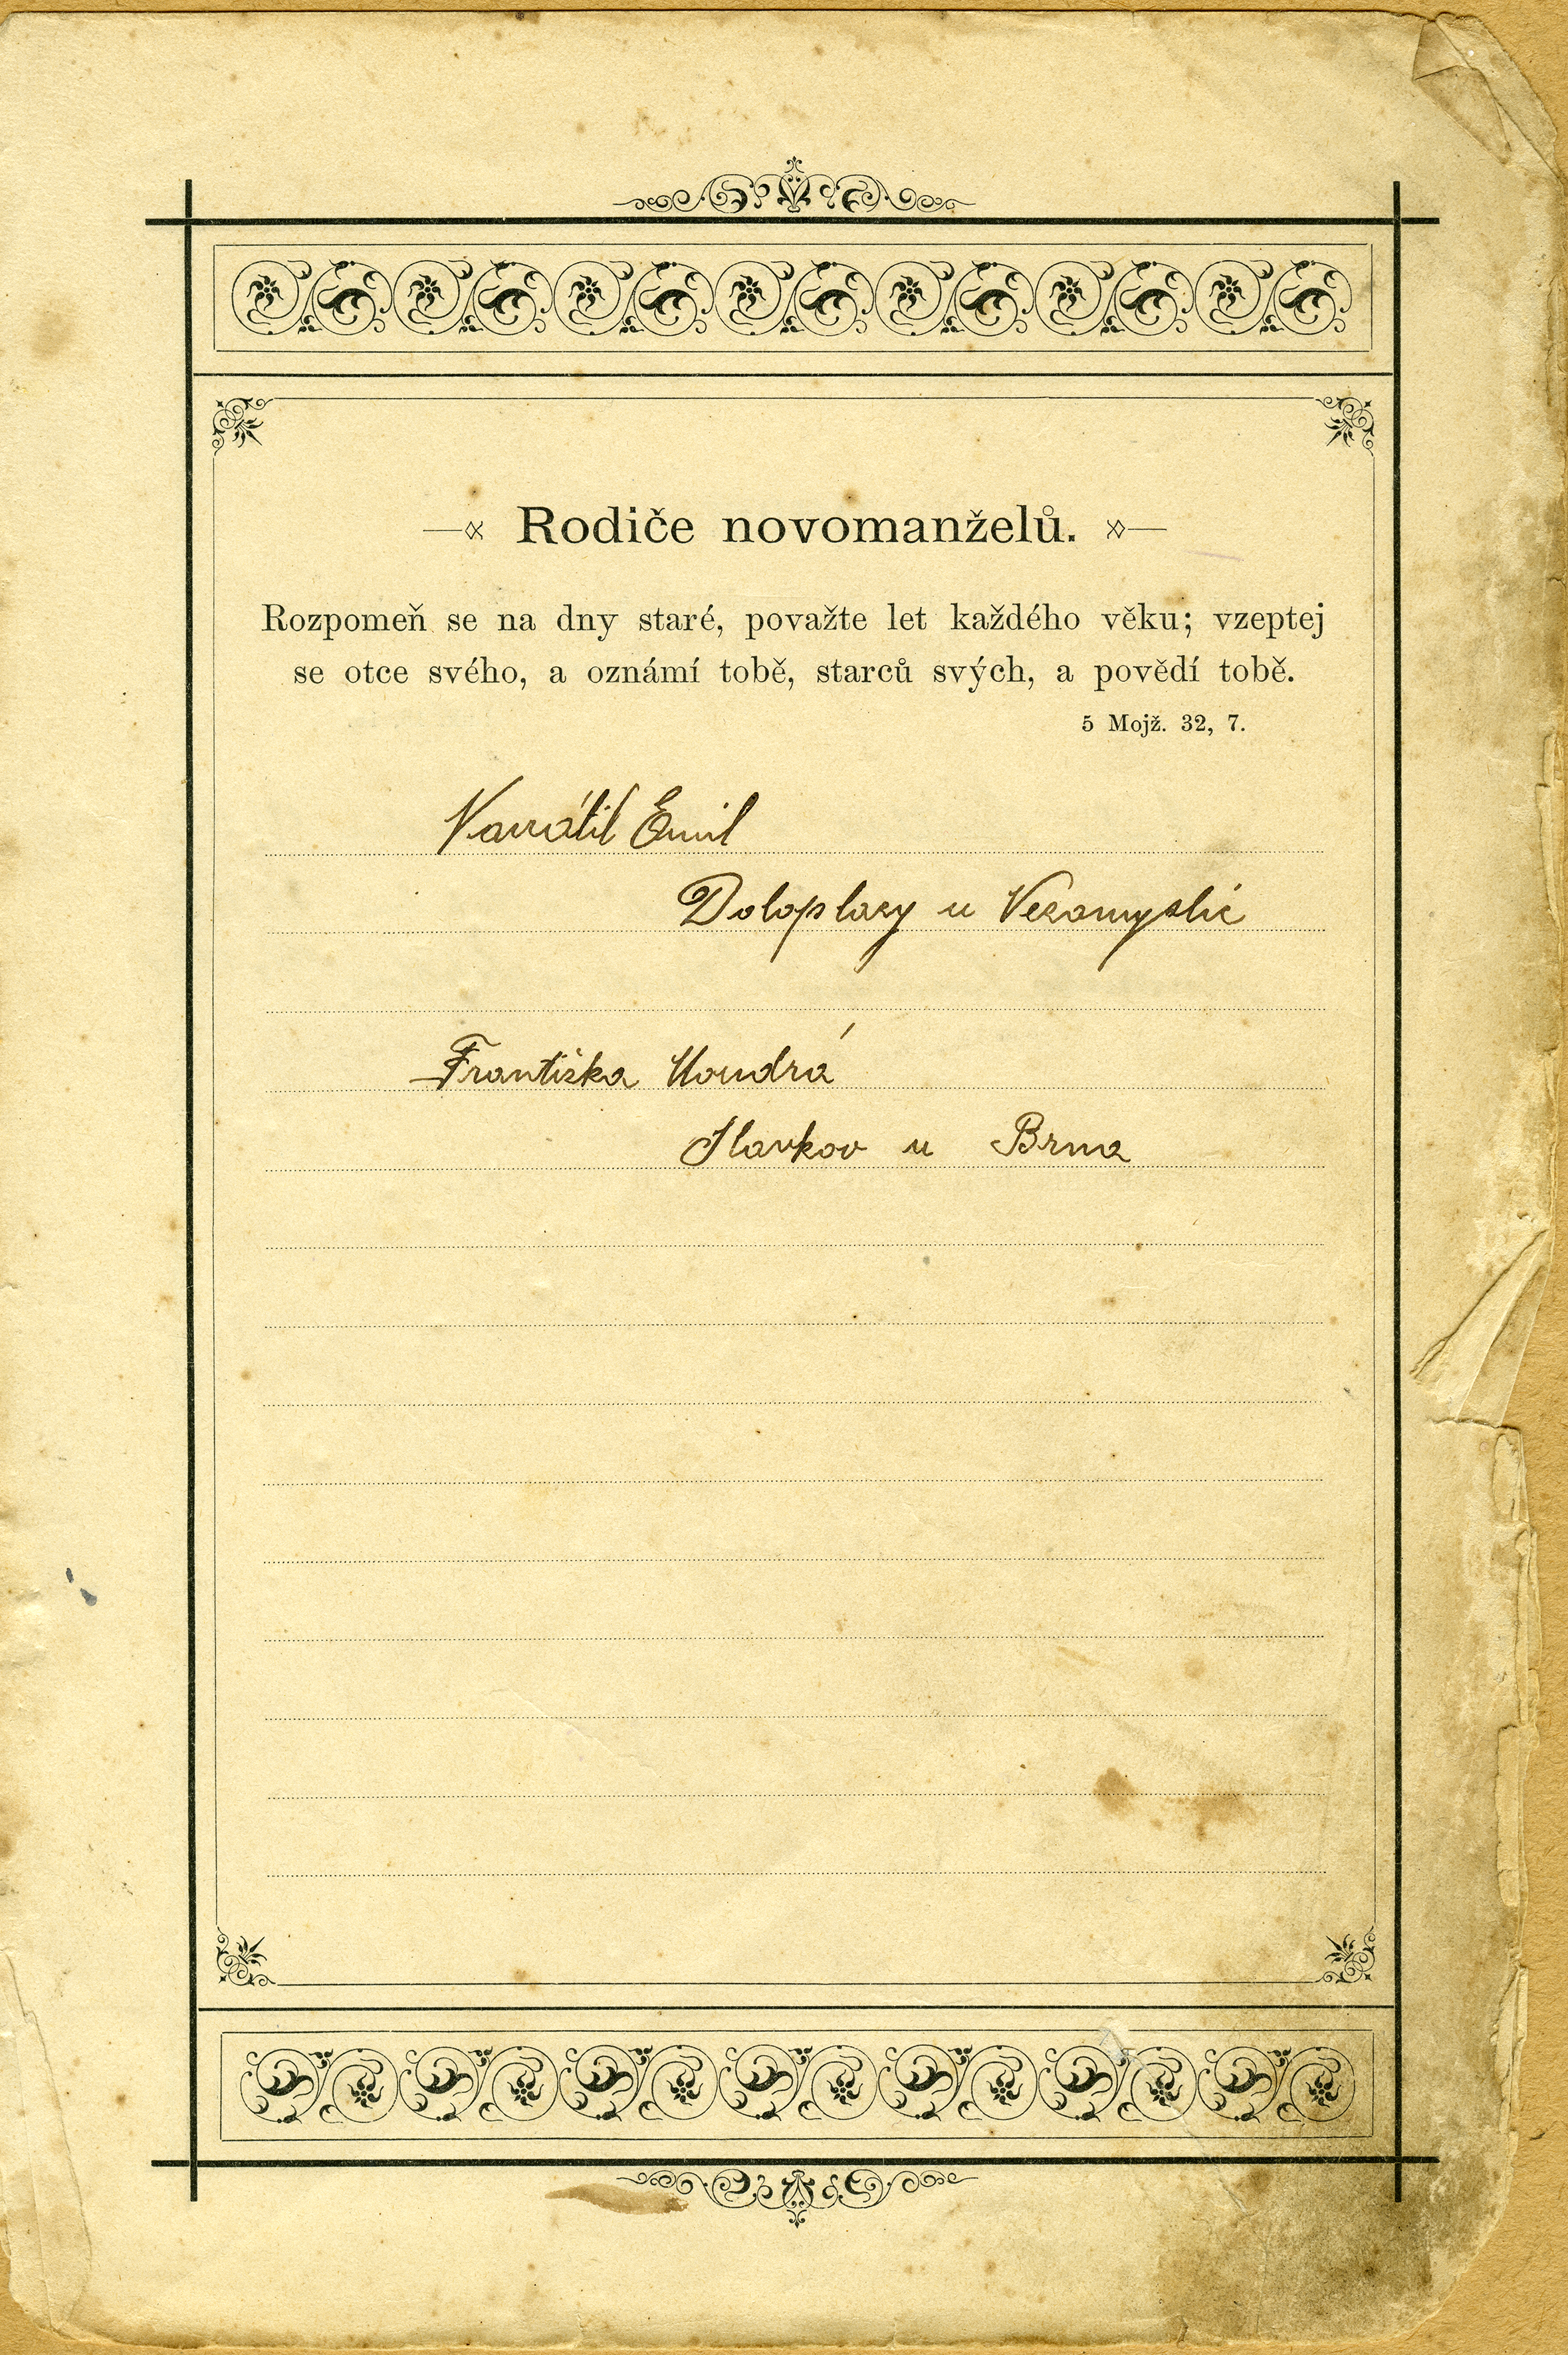 Rodiče novomanželů.
Rozpomeň se na dny staré, považte let každého věku; vzeptej
se otce svého, a oznámí tobě, starců svých, a povědí tobě.
5 Mojž. 32, 7.
Navrátil Emil
Doloplazy u Nezamyslic
Františka Moudrá
Slavkov u Brna